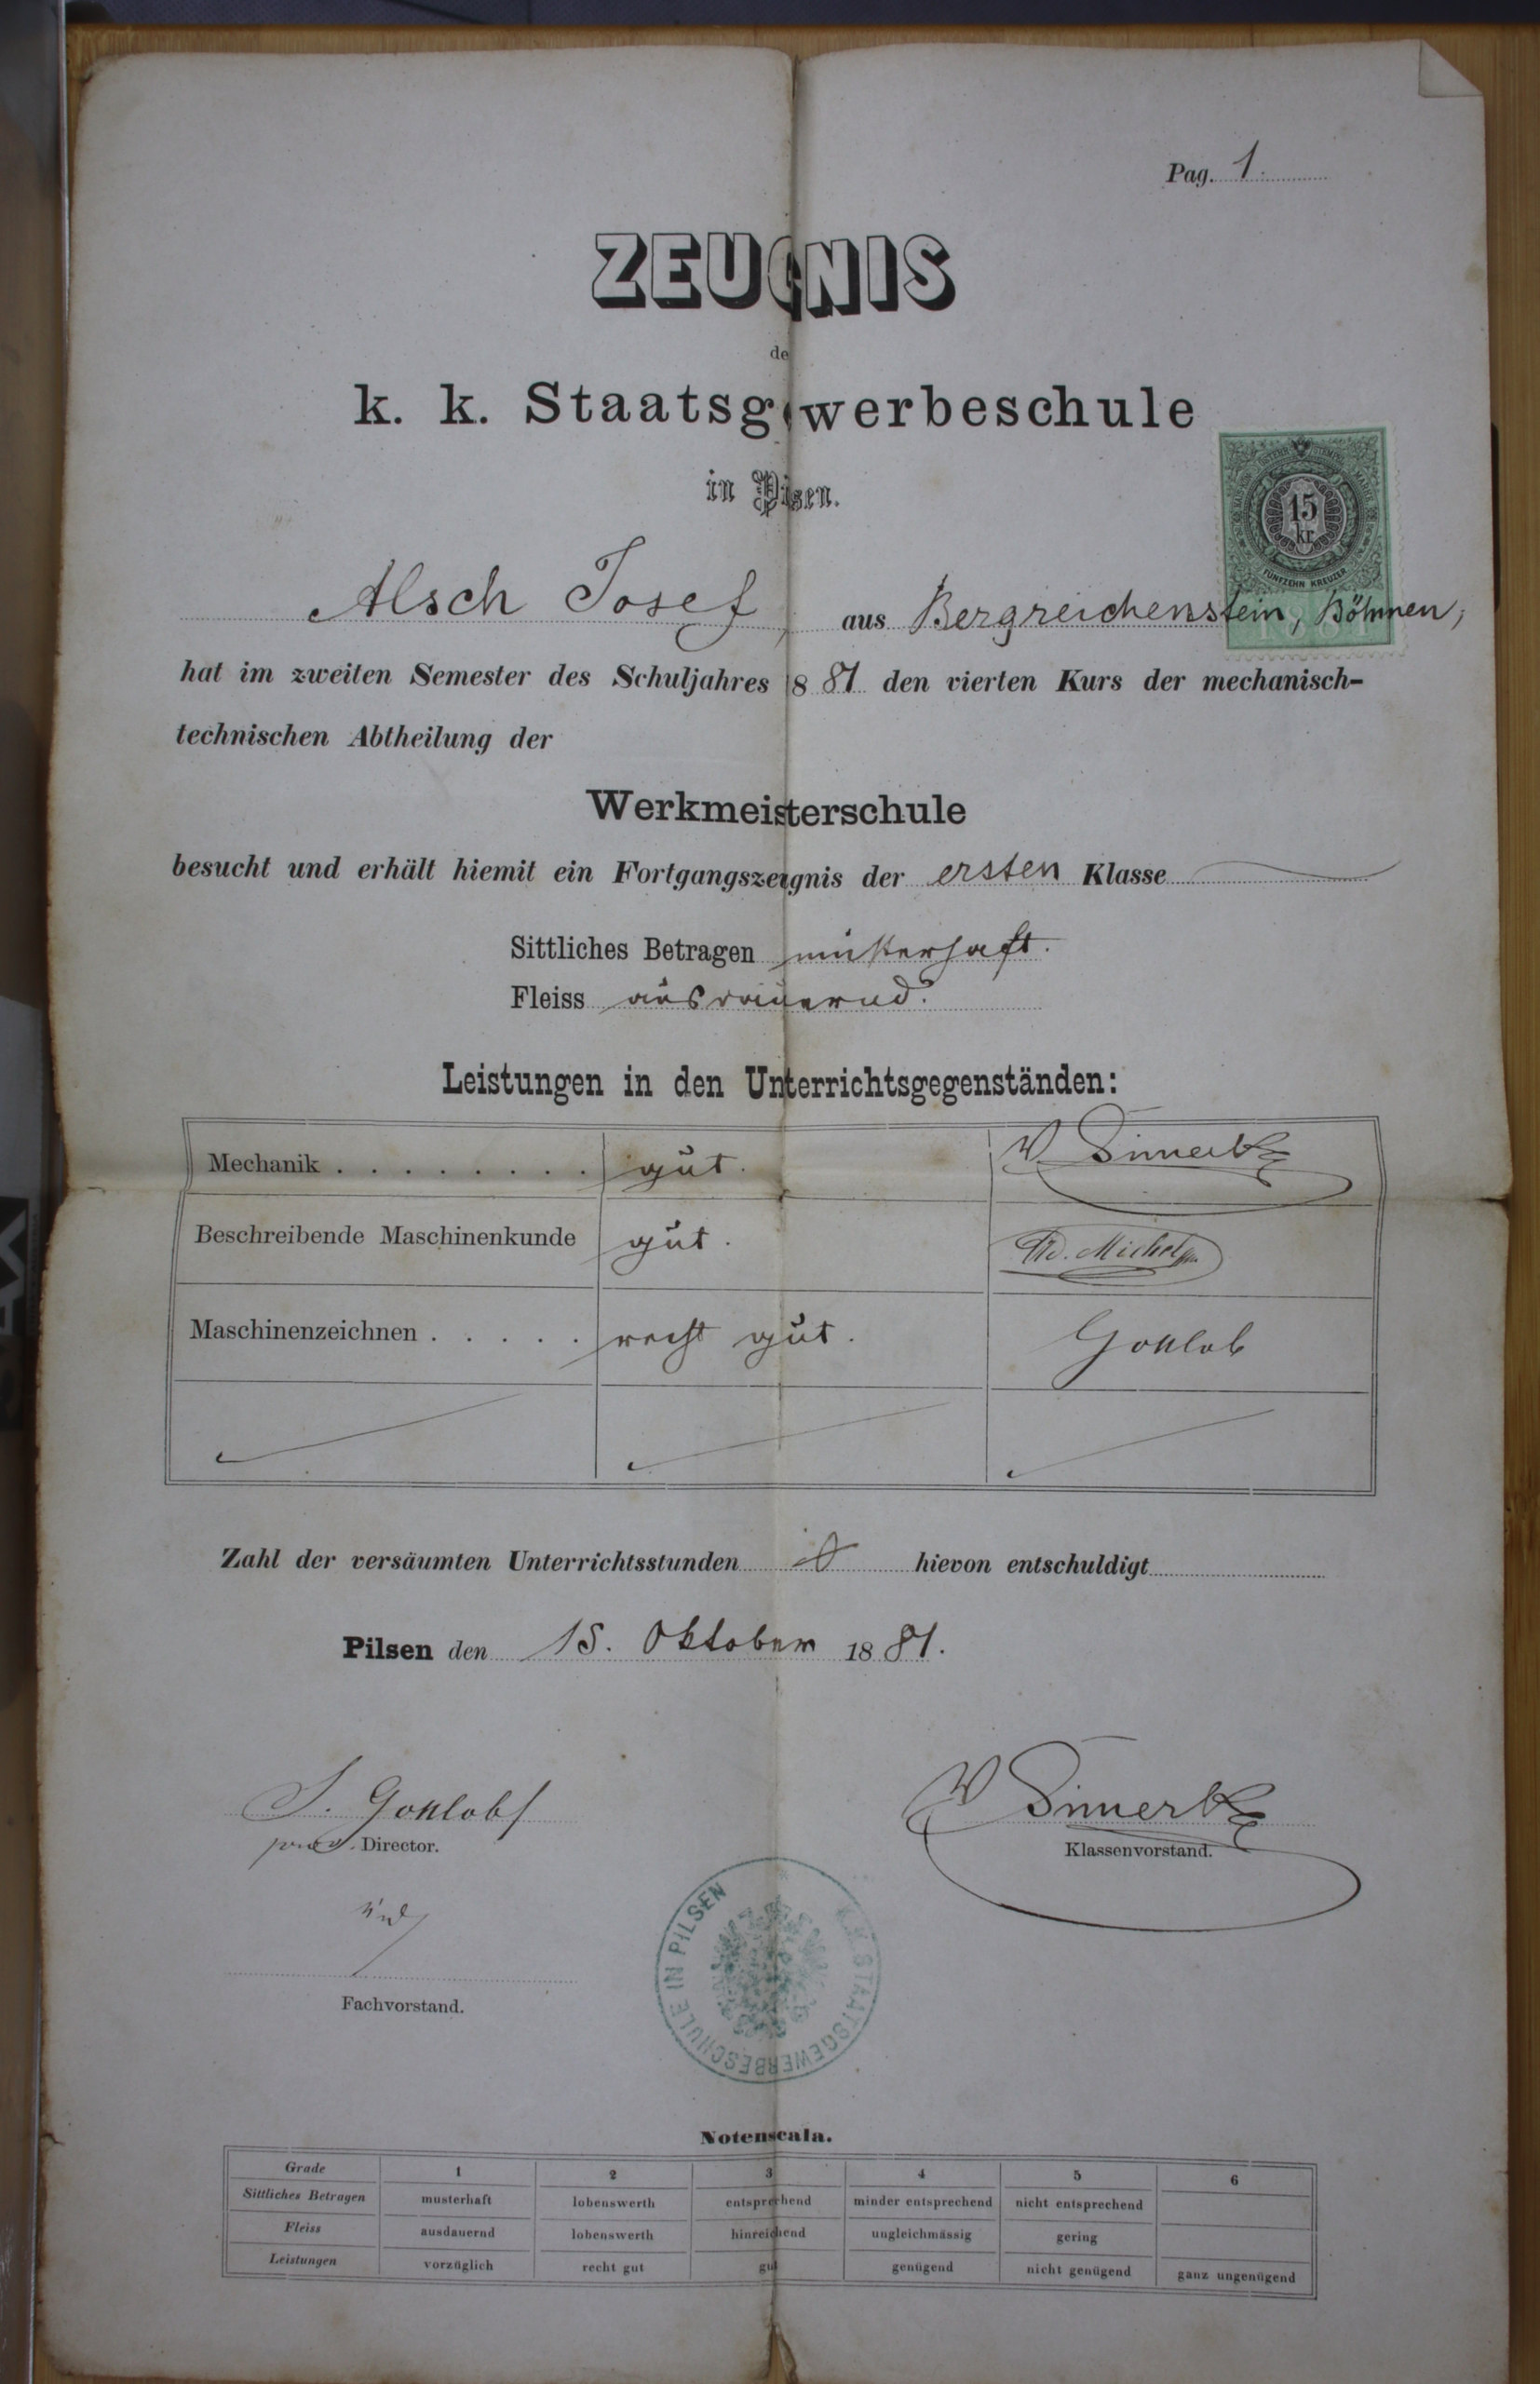 Pag. 1.
ZEUGNIS
der
k. k. Staatsgewerbeschule
in Pilsen.
15
kr.
FÜNFZEHN KREUZER
1881
Alsch Josef, aus Bergreichenstein, Böhmen,
hat im zweiten Semester des Schuljahres 1881 den vierten Kurs der mechanisch-
technischen Abtheilung der
Werkmeisterschule
besucht und erhält hiemit ein Fortgangszeugnis der ersten Klasse
Sittliches Betragen musterhaft.
Fleiss ausdauernd.
Leistungen in den Unterrichtsgegenständen:
Mechanik . . . . . . . . . gut.
Beschreibende Maschinenkunde gut. Michel
Maschinenzeichnen . . . . . recht gut. Gottlob
Zahl der versäumten Unterrichtsstunden 0 hievon entschuldigt
Pilsen den 15. Oktober 1881.
Gottlob
prov. Director.
Klassenvorstand.
und
Fachvorstand.
K.K. STAATSGEWERBESCHULE IN PILSEN
Notenscala.
Grade 1 2 3 4 5 6
Sittliches Betragen musterhaft lobenswerth entsprechend minder entsprechend nicht entsprechend
Fleiss ausdauernd lobenswerth hinreichend ungleichmässig gering
Leistungen vorzüglich recht gut gut genügend nicht genügend ganz ungenügend